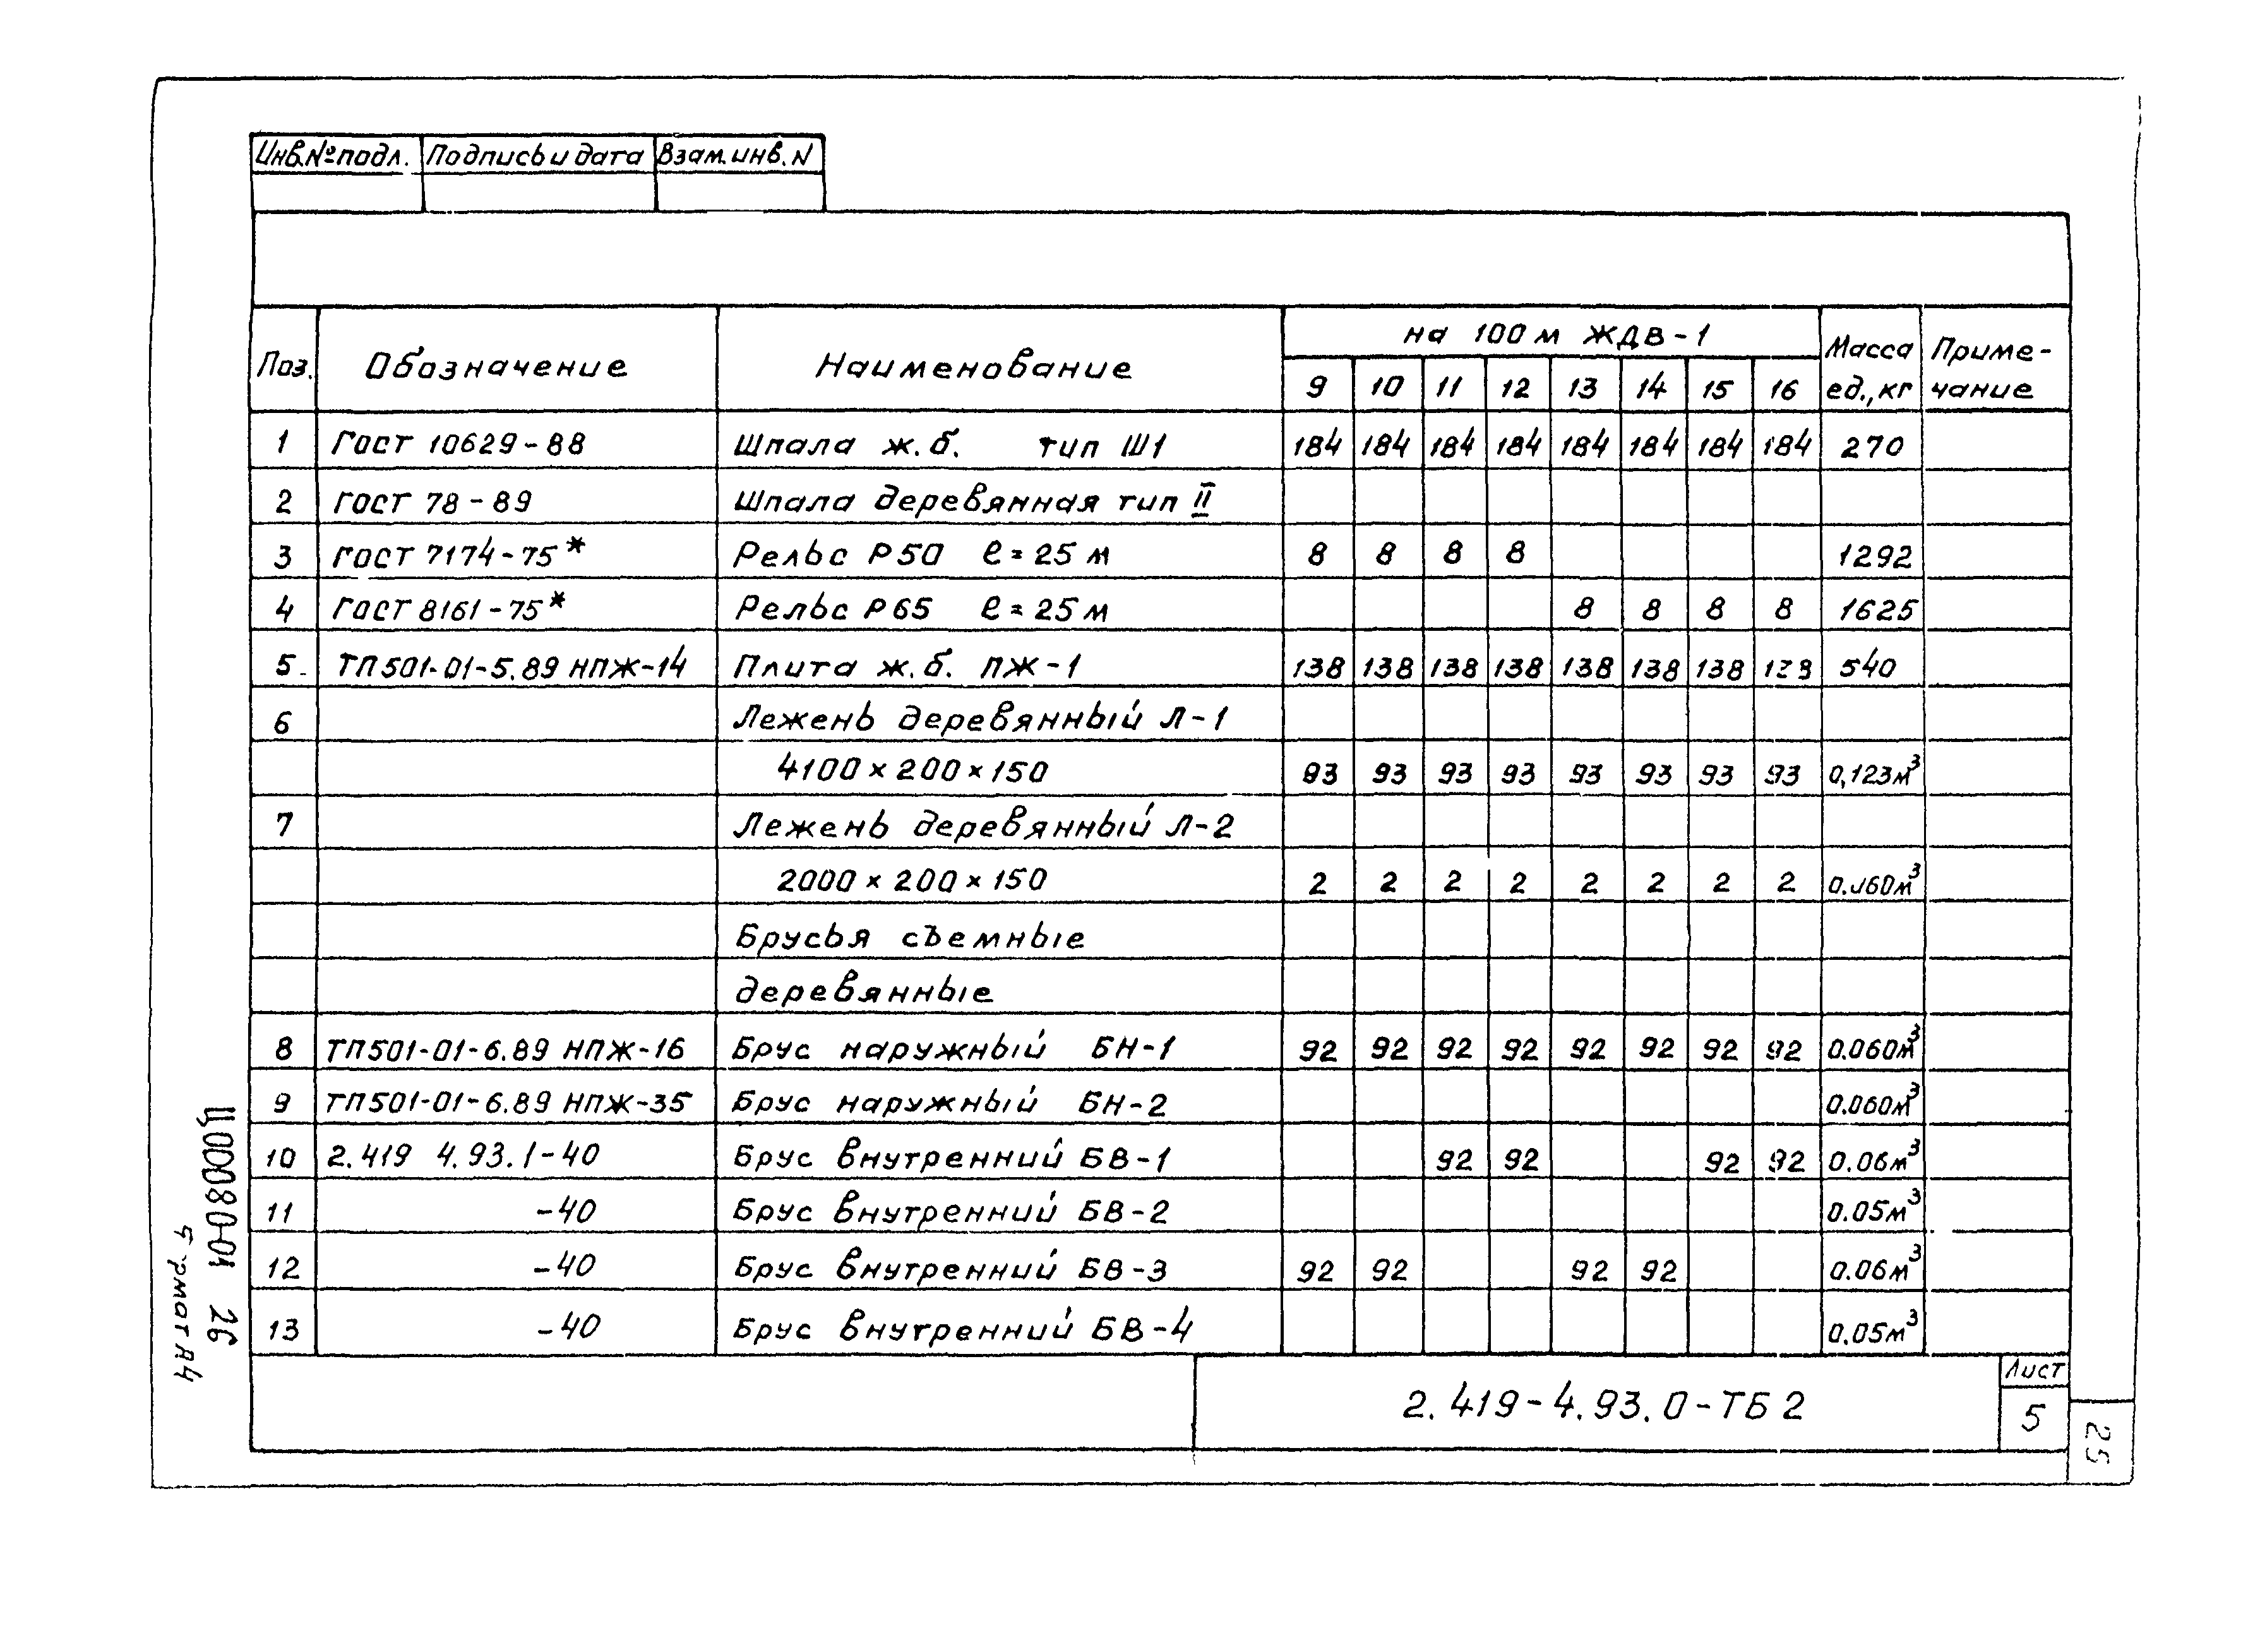 Инв.№ подл. Подпись и дата Взам. инв. N
Поз. Обозначение Наименование на 100 м ЖДВ-1 Масса ед., кг Приме-чание
9 10 11 12 13 14 15 16
1 Гост 10629-88 Шпала ж.б. тип Ш1 184 184 184 184 184 184 184 184 270
2 Гост 78-89 Шпала деревянная тип II
3 Гост 7174-75* Рельс Р50 ℓ=25 м 8 8 8 8 1292
4 Гост 8161-75* Рельс Р65 ℓ=25 м 8 8 8 8 1625
5 ТП501-01-5.89 НПЖ-14 Плита ж.б. ПЖ-1 138 138 138 138 138 138 138 138 540
6 Лежень деревянный Л-1
4100×200×150 93 93 93 93 93 93 93 93 0,123м³
7 Лежень деревянный Л-2
2000×200×150 2 2 2 2 2 2 2 2 0.060м³
Брусья съемные
деревянные
8 ТП501-01-6.89 НПЖ-16 Брус наружный БН-1 92 92 92 92 92 92 92 92 0.060м³
9 ТП501-01-6.89 НПЖ-35 Брус наружный БН-2 0.060м³
10 2.419 4.93.1-40 Брус внутренний БВ-1 92 92 92 92 0.06м³
11 -40 Брус внутренний БВ-2 0.05м³
12 -40 Брус внутренний БВ-3 92 92 92 92 0.06м³
13 -40 Брус внутренний БВ-4 0.05м³
2.419-4.93.0-ТБ2
Лист
5
25
Ц00080-01 26
Формат А4